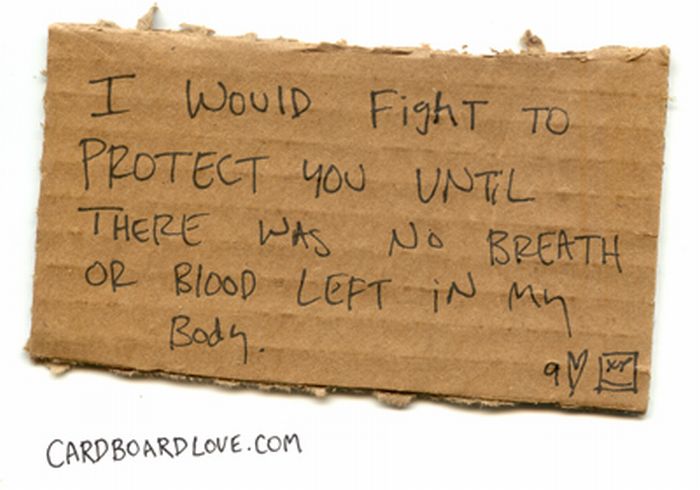 I WOULD FighT TO
PROTECT YOU UNTiL
THERE WAS NO BREATH
OR BLOOD LEFT iN My
Body.
9
CARDBOARDLOVE.COM